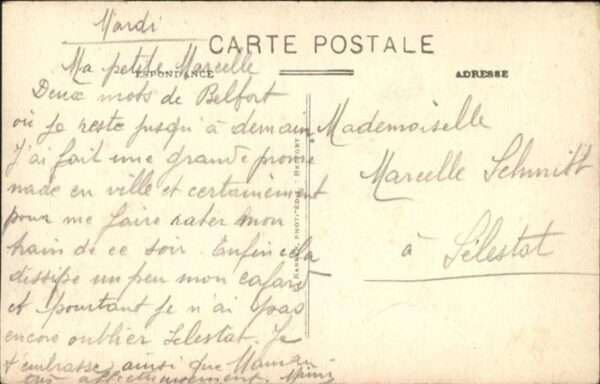 Mardi
CARTE POSTALE
CORRESPONDANCE
ADRESSE
Ma petite Marcelle
Deux mots de Belfort
où je reste jusqu'à demain
J'ai fait une grande prome
nade en ville et certainement
pour me faire rater mon
train de ce soir. Enfin cela
dissipe un peu mon cafard
et pourtant je n'ai pas
encore oublier Sélestat. Je
t'embrasse ainsi que Maman
très affectueusement. Mimi
Mademoiselle
Marcelle Schmitt
à Sélestat
PHOT.-ÉDIT. BELFORT